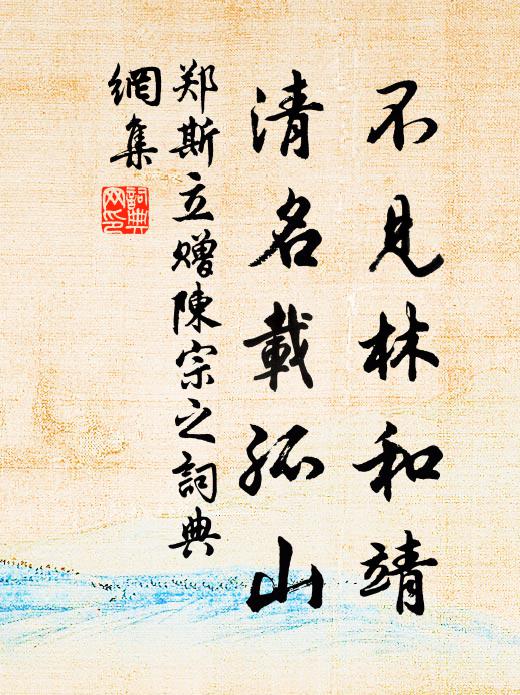 不見林和靖
清名載孤山
郑斯立赠陳宗之詞典
網集
詞典
网印